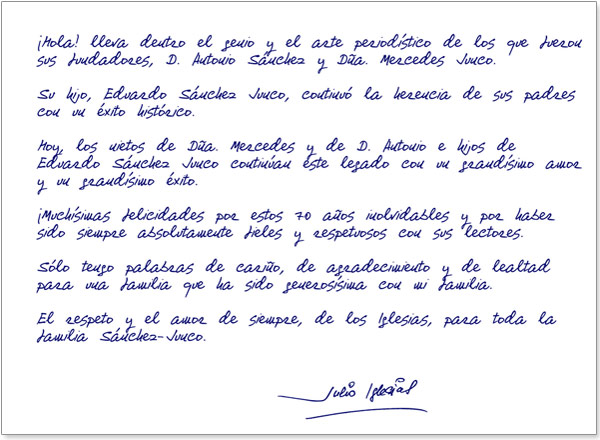 ¡Hola! lleva dentro el genio y el arte periodístico de los que fueron
sus fundadores, D. Antonio Sánchez y Dña. Mercedes Junco.
Su hijo, Eduardo Sánchez Junco, continuó la herencia de sus padres
con un éxito histórico.
Hoy, los nietos de Dña. Mercedes y de D. Antonio e hijos de
Eduardo Sánchez Junco continúan este legado con un grandísimo amor
y un grandísimo éxito.
¡Muchísimas felicidades por estos 70 años inolvidables y por haber
sido siempre absolutamente fieles y respetuosos con sus lectores.
Sólo tengo palabras de cariño, de agradecimiento y de lealtad
para una familia que ha sido generosísima con mi familia.
El respeto y el amor de siempre, de los Iglesias, para toda la
familia Sánchez-Junco.
Julio Iglesias